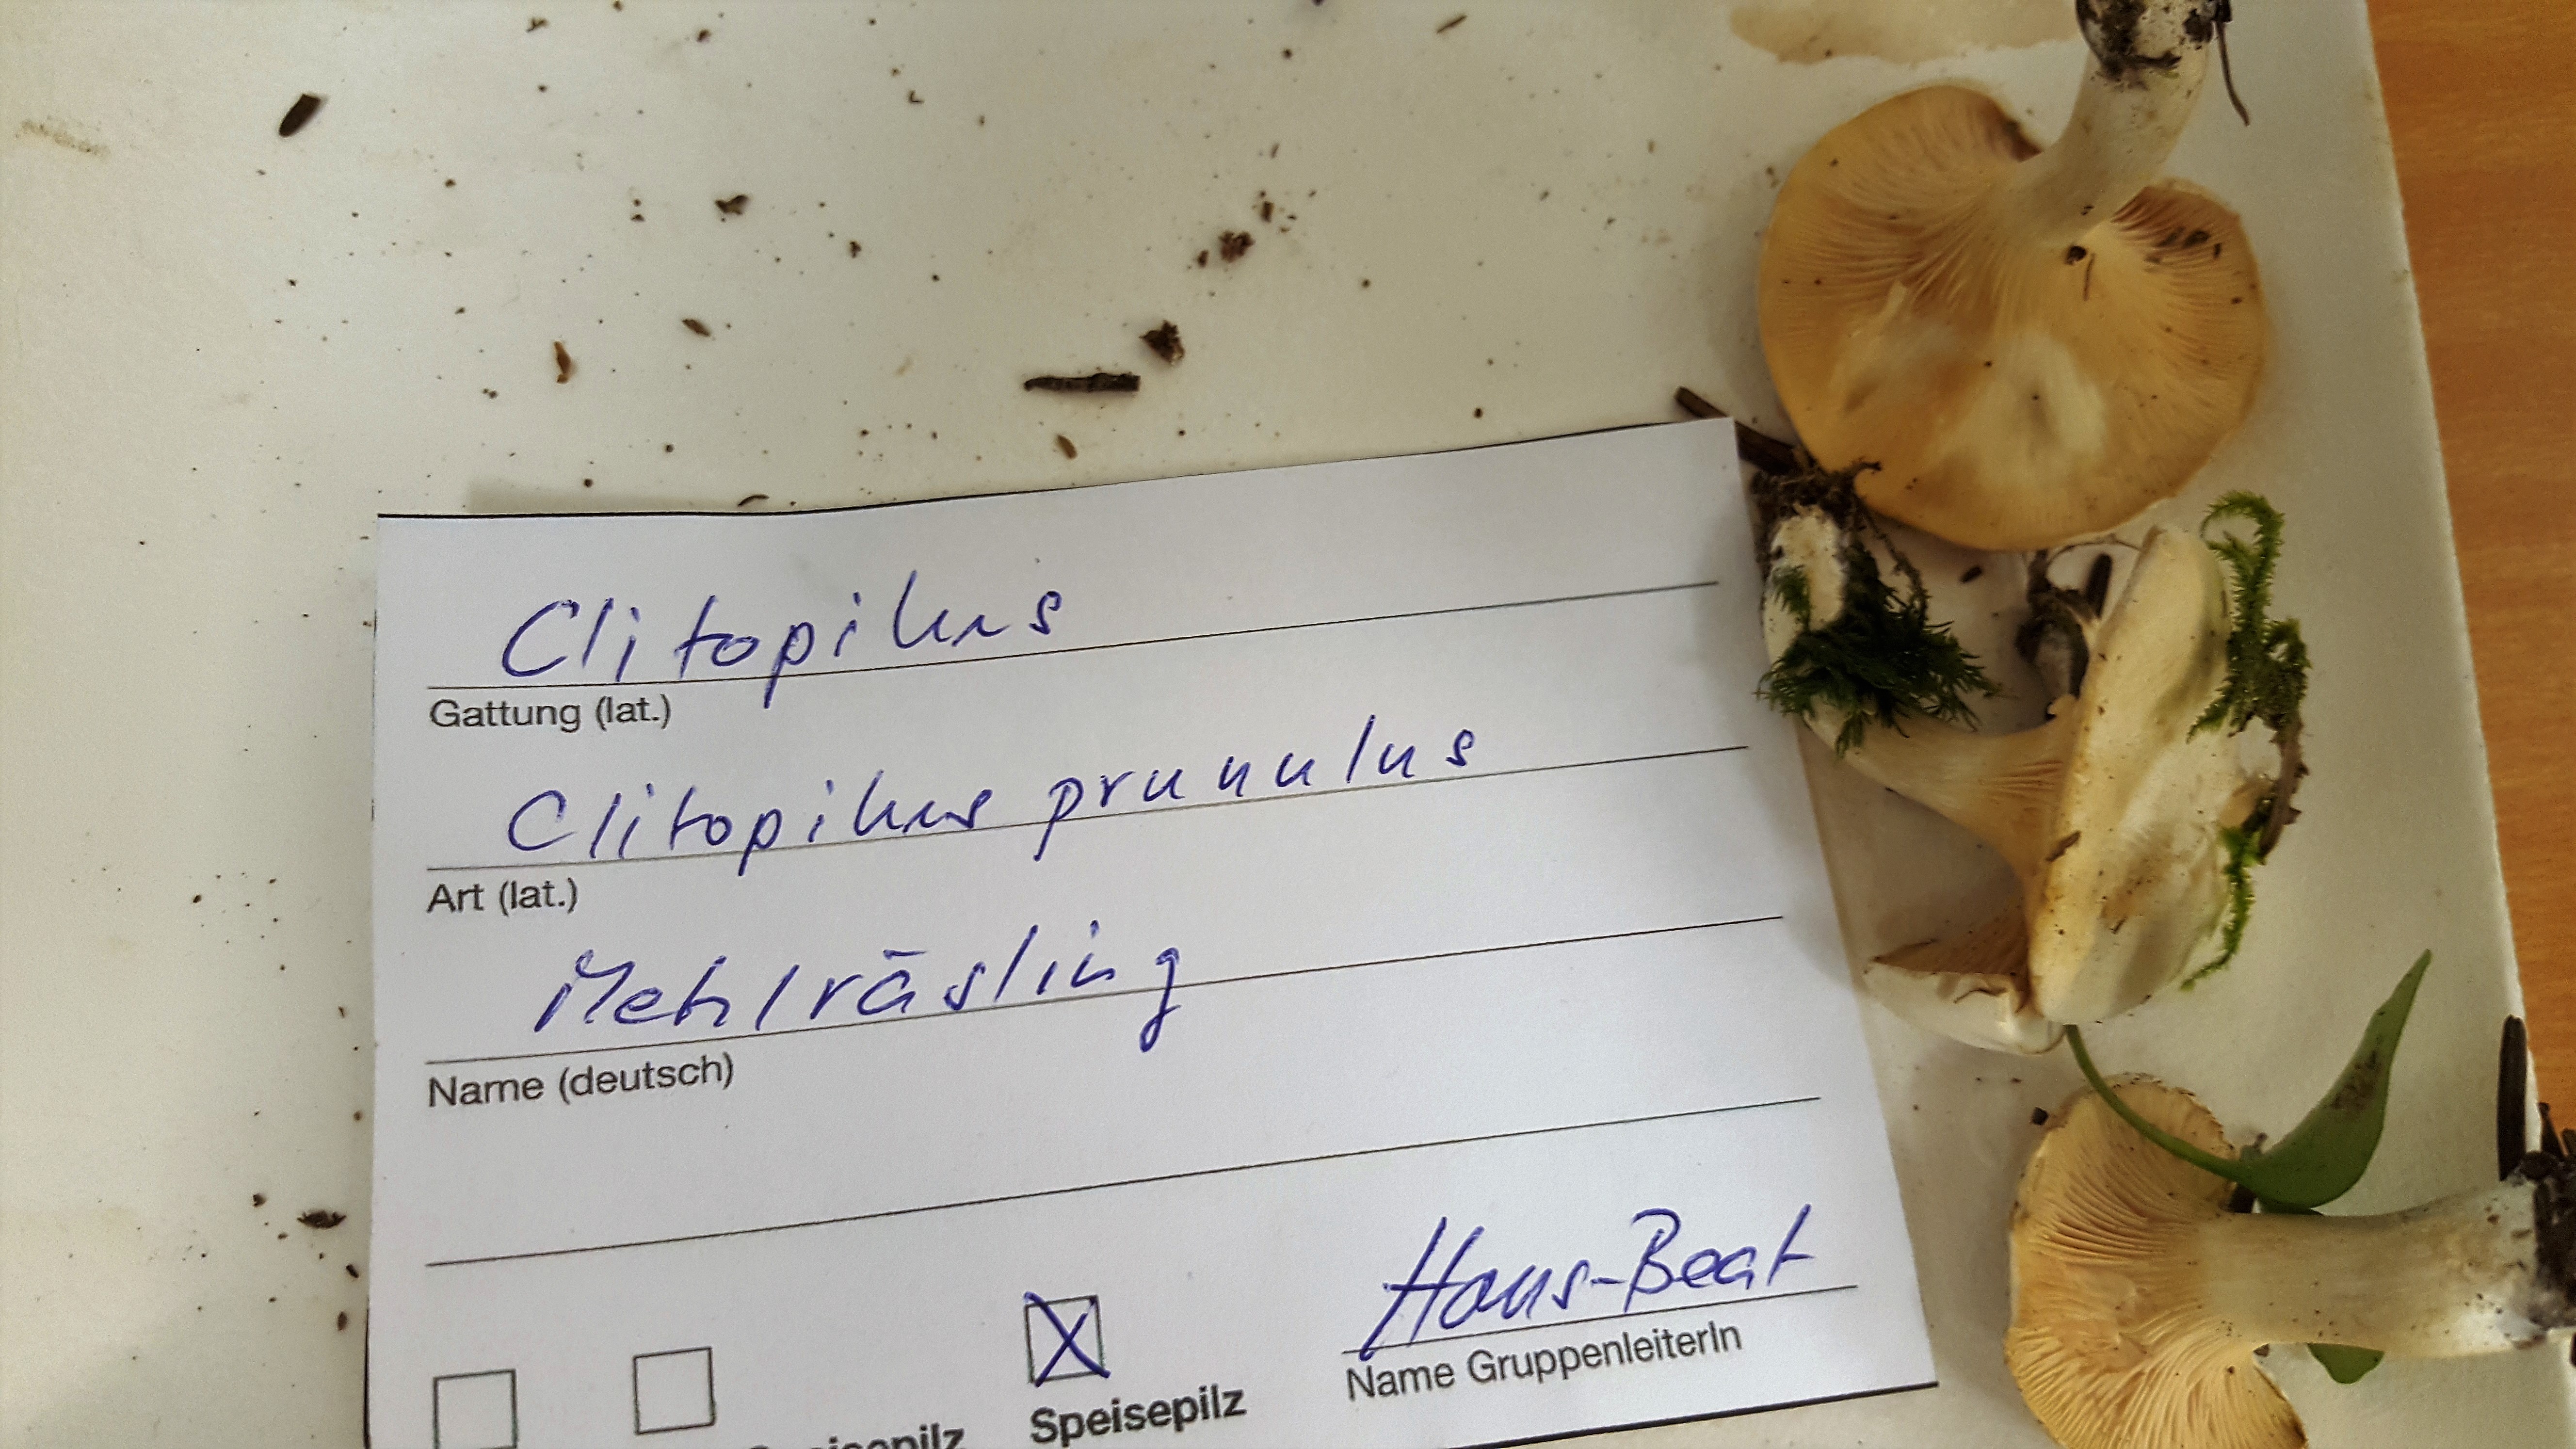 Clitopilus
Gattung (lat.)
Clitopilus prunulus
Art (lat.)
Mehlräsling
Name (deutsch)
Hans-Beat
Name GruppenleiterIn
X
Speisepilz